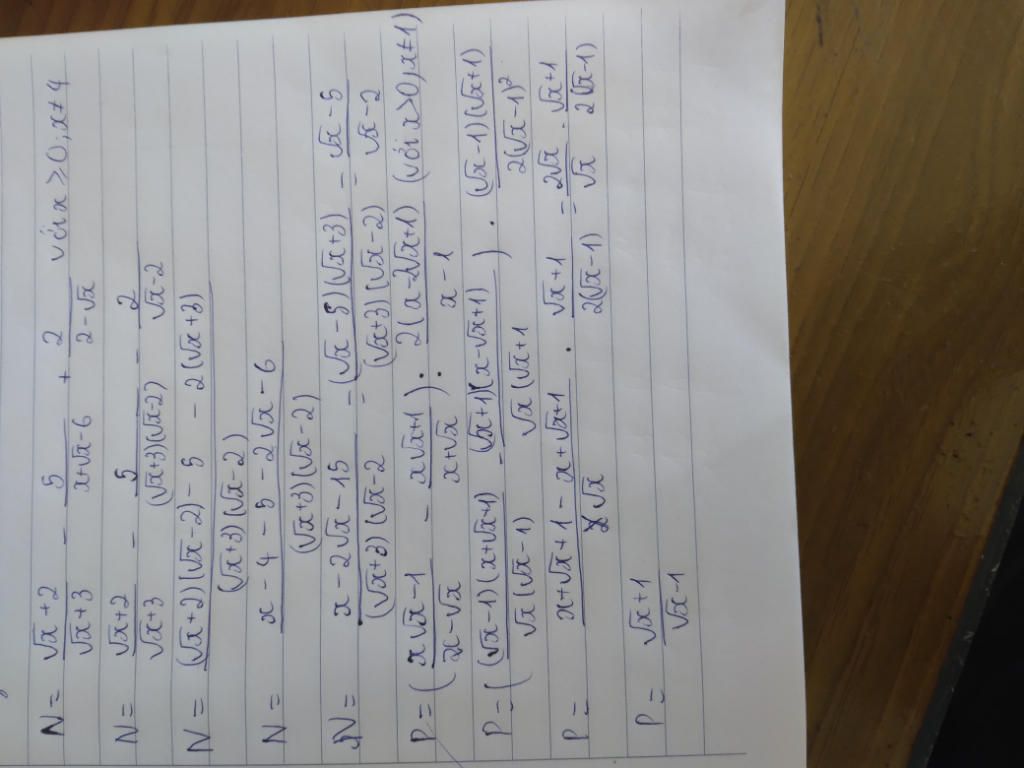 N = (√x+2)/(√x+3) - 5/(x+√x-6) + 2/(2-√x) với x ≥ 0, x ≠ 4
N = (√x+2)/(√x+3) - 5/((√x+3)(√x-2)) - 2/(√x-2)
N = ((√x+2)(√x-2) - 5 - 2(√x+3))/((√x+3)(√x-2))
N = (x - 4 - 5 - 2√x - 6)/((√x+3)(√x-2))
N = (x - 2√x - 15)/((√x+3)(√x-2) = ((√x-5)(√x+3))/((√x+3)(√x-2)) = (√x-5)/(√x-2)
P = ((x√x-1)/(x-√x) - (x√x+1)/(x+√x)) : (2(x-2√x+1))/(x-1) (với x>0, x≠1)
P = (((√x-1)(x+√x+1))/(√x(√x-1)) - ((√x+1)(x-√x+1))/(√x(√x+1)) . ((√x-1)(√x+1))/(2(√x-1)²)
P = (x+√x+1-x+√x+1)/(√x) . (√x+1)/(2(√x-1)) = (2√x)/(√x) . (√x+1)/(2(√x-1))
P = (√x+1)/(√x-1)